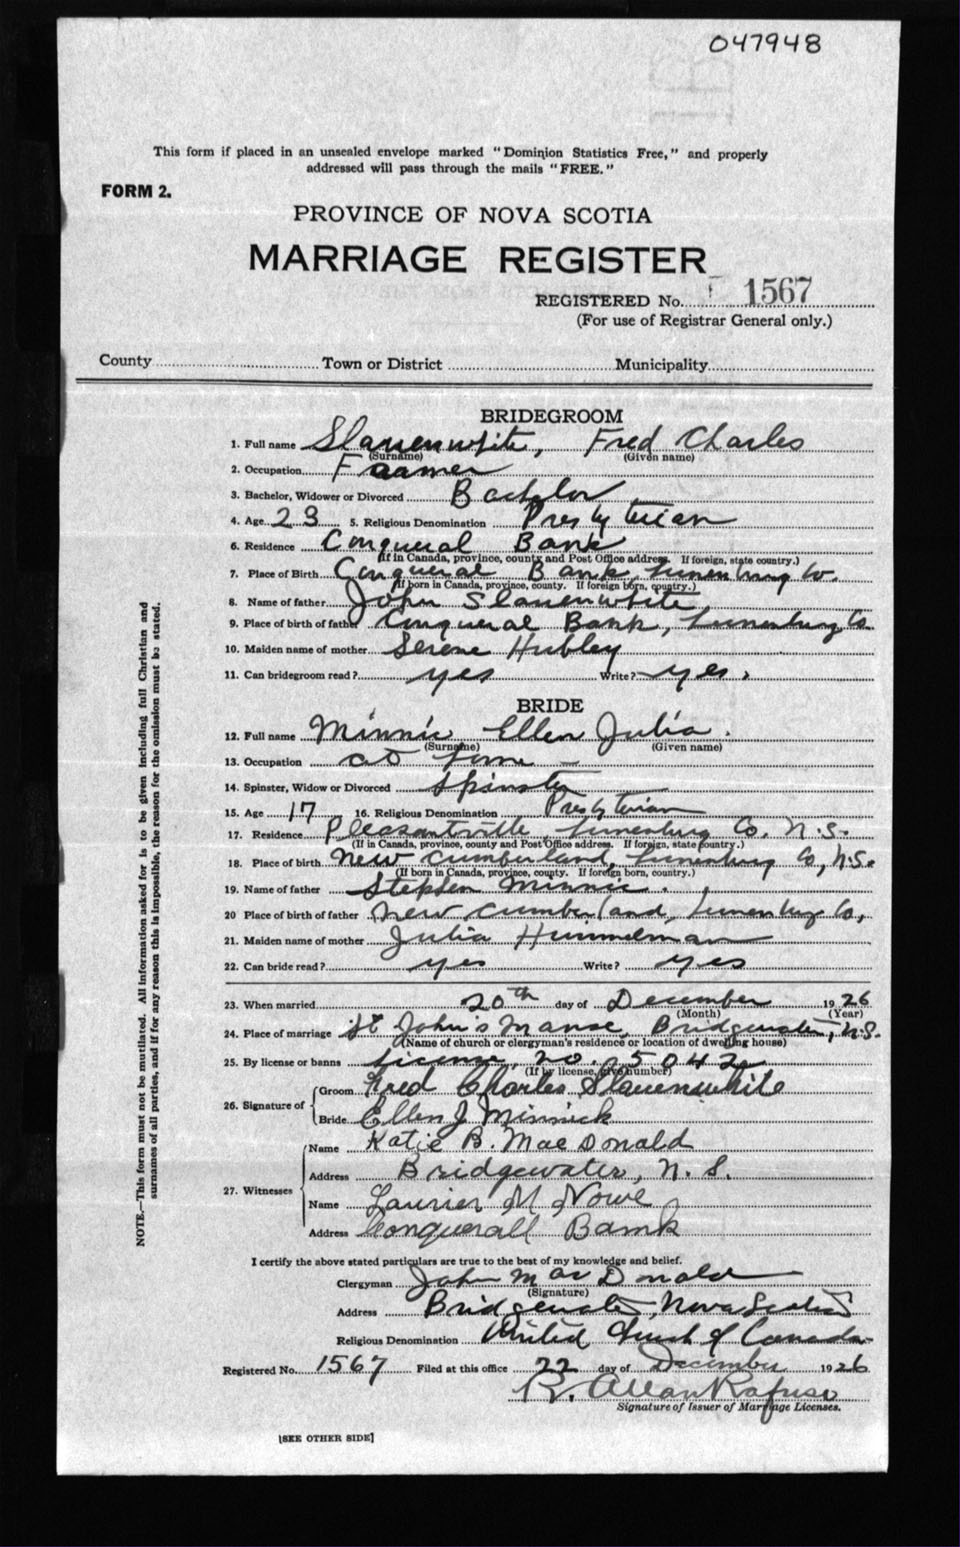 047948
This form if placed in an unsealed envelope marked "Dominion Statistics Free," and properly
addressed will pass through the mails "FREE."
FORM 2.
PROVINCE OF NOVA SCOTIA
MARRIAGE REGISTER
REGISTERED No. 1567
(For use of Registrar General only.)
County Town or District Municipality
BRIDEGROOM
1. Full name Slauenwhite, Fred Charles
(Surname) (Given name)
2. Occupation Farmer
3. Bachelor, Widower or Divorced Bachelor
4. Age 23 5. Religious Denomination Presbyterian
6. Residence Conqueral Bank
(If in Canada, province, county and Post Office address. If foreign, state country.)
7. Place of Birth Conqueral Bank, Lunenburg Co.
(If born in Canada, province, county. If foreign born, country.)
8. Name of father John Slauenwhite
9. Place of birth of father Conqueral Bank, Lunenburg Co.
10. Maiden name of mother Serene Hubley
11. Can bridegroom read? yes Write? yes.
BRIDE
12. Full name Minnic Ellen Julia.
(Surname) (Given name)
13. Occupation at home
14. Spinster, Widow or Divorced Spinster
15. Age 17 16. Religious Denomination Presbyterian
17. Residence Pleasantville, Lunenburg Co. N.S.
(If in Canada, province, county and Post Office address. If foreign, state country.)
18. Place of birth New Cumberland, Lunenburg Co, N.S.
(If born in Canada, province, county. If foreign born, country.)
19. Name of father Stephen Minnic.
20 Place of birth of father New Cumberland, Lunenburg Co,
21. Maiden name of mother Julia Himmelman
22. Can bride read? yes Write? yes
23. When married 20th day of December 1926
(Month) (Year)
24. Place of marriage St John's Manse, Bridgewater, N.S.
(Name of church or clergyman's residence or location of dwelling house)
25. By license or banns License, no. 5042
(If by license, give number)
26. Signature of Groom Fred Charles Slauenwhite
Bride Ellen J Minnick
27. Witnesses Name Katie B. MacDonald
Address Bridgewater, N. S.
Name Laurier M Nowe
Address Conquerall Bank
I certify the above stated particulars are true to the best of my knowledge and belief.
Clergyman John MacDonald
(Signature)
Address Bridgewater, Nova Scotia
Religious Denomination United Church of Canada
Registered No. 1567 Filed at this office 22 day of December 1926
R. Allan Rafuse
Signature of Issuer of Marriage Licenses.
[SEE OTHER SIDE]
NOTE.—This form must not be mutilated. All information asked for is to be given including full Christian and
surnames of all parties, and if for any reason this is impossible, the reason for the omission must be stated.